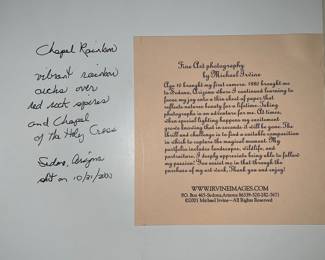 Chapel Rainbow
vibrant rainbow
archs over
red rock spires
and Chapel
of the Holy Cross
Sedona, Arizona
shot on 10/21/200
Fine Art photography
by Michael Irvine
Age 10 brought my first camera. 1980 brought me
to Sedona, Arizona where I continued learning to
focus my joy onto a thin sheet of paper that
reflects natures beauty for a lifetime. Taking
photographs is an adventure for me. At times,
when special lighting happens my excitement
grows knowing that in seconds it will be gone. The
thrill and challenge is to find a suitable composition
in which to capture the magical moment. My
portfolio includes landscapes, wildlife, and
portraiture. I deeply appreciate being able to follow
my passion! You assist me in that through the
purchase of my art work, Thank you and enjoy!
WWW.IRVINEIMAGES.COM
P.O. Box 465-Sedona,Arizona 86339-520-282-5671
©2001 Michael Irvine-All Rights Reserved